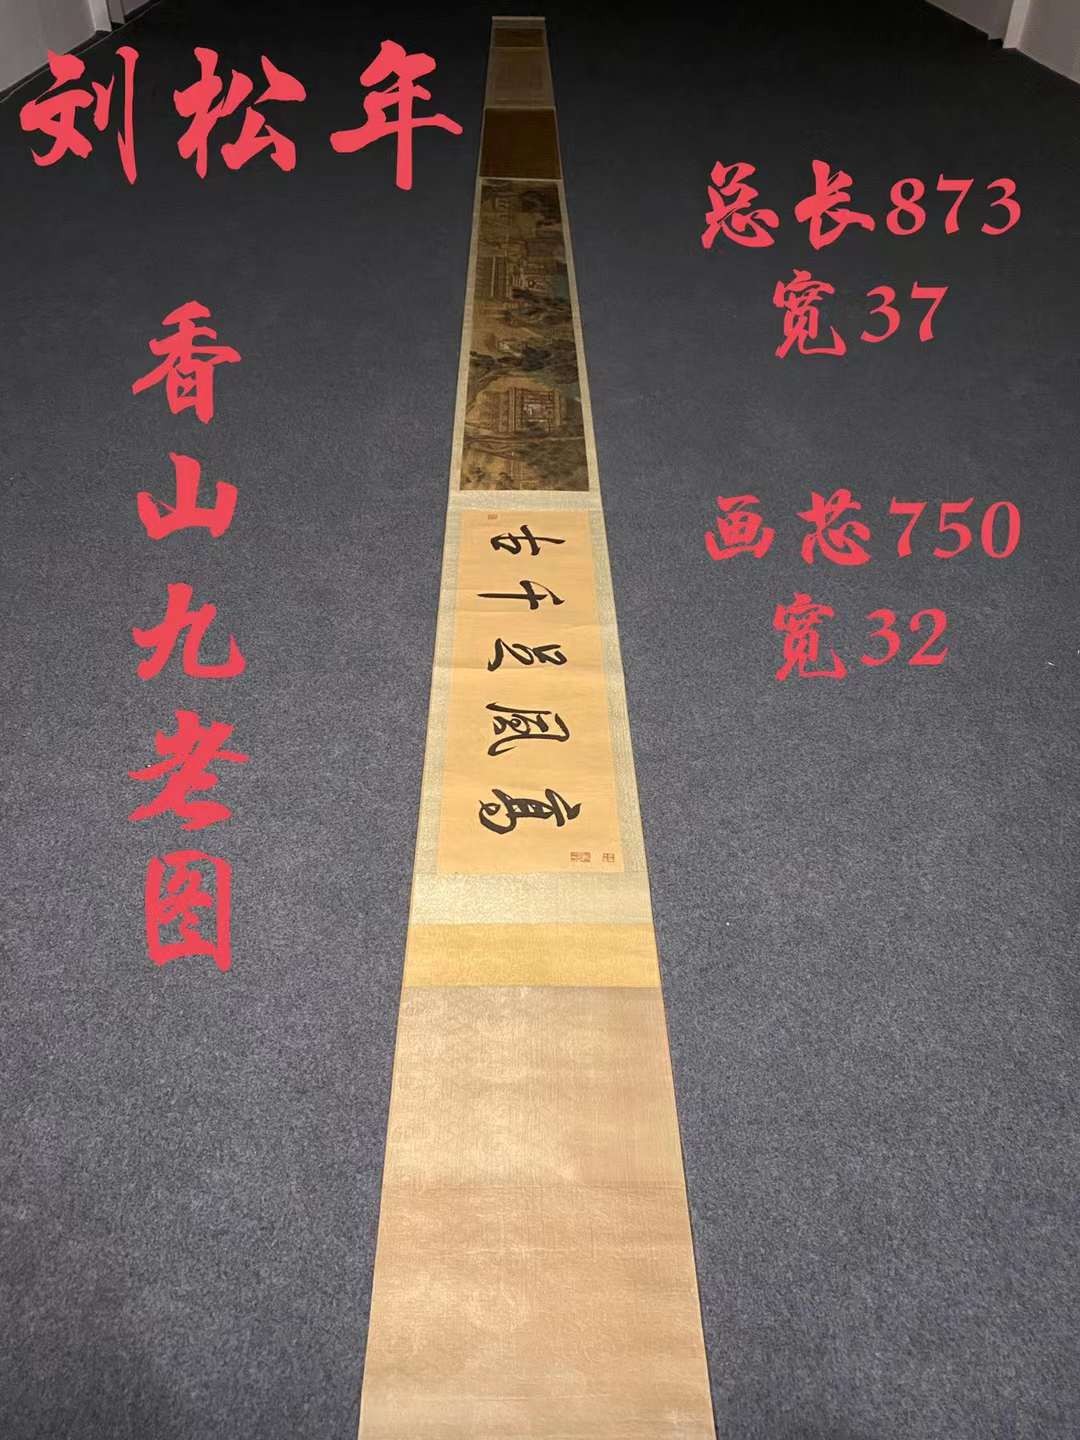 刘松年
香山九老图
总长873
宽37
画芯750
宽32
高風足千古